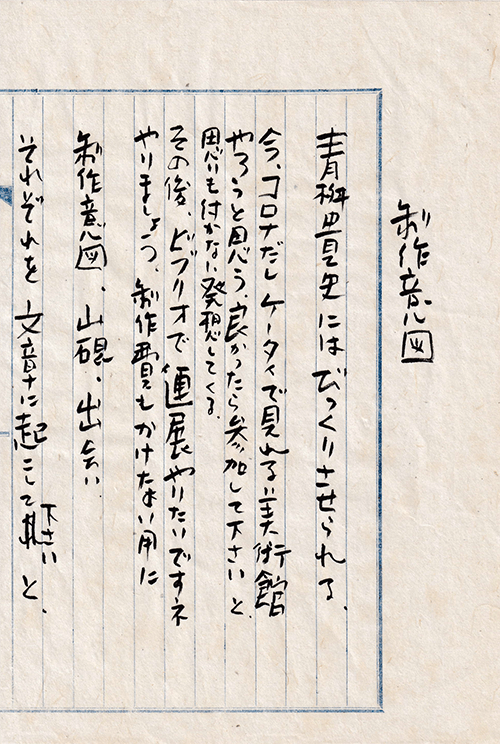 制作意図
青栁貴史にはびっくりさせられる、
今、コロナだしケータイで見れる美術館
やろうと思う、良かったら参加して下さいと、
思いも付かない発想してくる。
その後、ビブリオで連展やりたいですネ
やりましょう、制作費もかけない用に
制作意図、山硯、出会い
それぞれを文章に起こして下さいと、